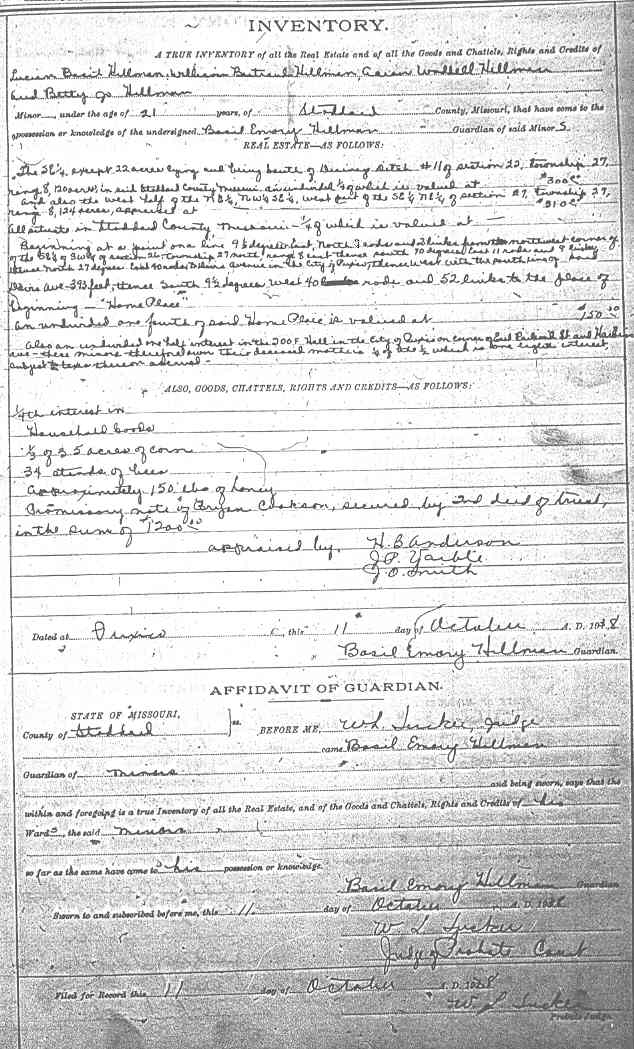 INVENTORY.
A TRUE INVENTORY of all the Real Estate and of all the Goods and Chattels, Rights and Credits of
Lucian Basil Hillman, William Bertrand Hillman, Aaron Wendell Hillman
and Betty Jo Hillman
Minor , under the age of 21 years, of Stoddard County, Missouri, that have come to the
possession or knowledge of the undersigned Basil Emory Hillman Guardian of said Minor S.
REAL ESTATE—AS FOLLOWS:
The SE¼ except 22 acres lying and being south of Drainage Ditch #11 of section 22, township 27,
range 8, 120 acres, in said Stoddard County Missouri an undivided ¼ of which is valued at $300 00
And also the west half of the NE¼, NW¼ SE¼, west part of the SE¼ NE¼ of section 27, township 27,
range 8, 124 acres, appraised at $310 00
All situate in Stoddard County, Missouri - ¼ of which is valued at —
Beginning at a point on a line 9½ degrees West, North 3 rods and 3 links from the northwest corner of
the SE¼ of SW¼ of section 26 township 27 north, range 8 east thence south 70 degrees East 11 rods and 9 links,
thence North 27 degrees East 40 rods to avenue in the City of Puxico, thence West with the south line of said
Ave - 393 feet, thence South 9½ degrees West 40 rods and 52 links to the place of
beginning — "Home Place"
an undivided one fourth of said Home Place is valued at $150 00
Also an undivided one half interest in the I.O.O.F. Hall in the City of Puxico on corner of East St and
ave - these minors therefrom their deceased mother's ¼ of the ½ which is one eighth interest,
subject to taxes thereon accrued -
ALSO, GOODS, CHATTELS, RIGHTS AND CREDITS—AS FOLLOWS:
¼th interest in
Household Goods
½ of 35 acres of corn
34 stands of bees
approximately 150 lbs of honey
Promissory note of Bryan Cookson, secured by 2nd deed of trust,
in the sum of $1200 00
appraised by, H. B Anderson
J. P. Yaible
J. O. Smith
Dated at Puxico , this 11 day of October A. D. 1928
Basil Emory Hillman Guardian.
AFFIDAVIT OF GUARDIAN.
STATE OF MISSOURI, } ss.
County of Stoddard BEFORE ME, W. L. Tucker, Judge
came Basil Emory Hillman
Guardian of minors
and being sworn, says that the
within and foregoing is a true Inventory of all the Real Estate, and of the Goods and Chattels, Rights and Credits of his
Ward s, the said minors
so far as the same have come to his possession or knowledge.
Basil Emory Hillman Guardian
Sworn to and subscribed before me, this 11. day of October A. D. 1928
W. L. Tucker
Judge of Probate Court
Filed for Record this 11 day of October A. D. 1928
W. L. Tucker
Probate Judge.